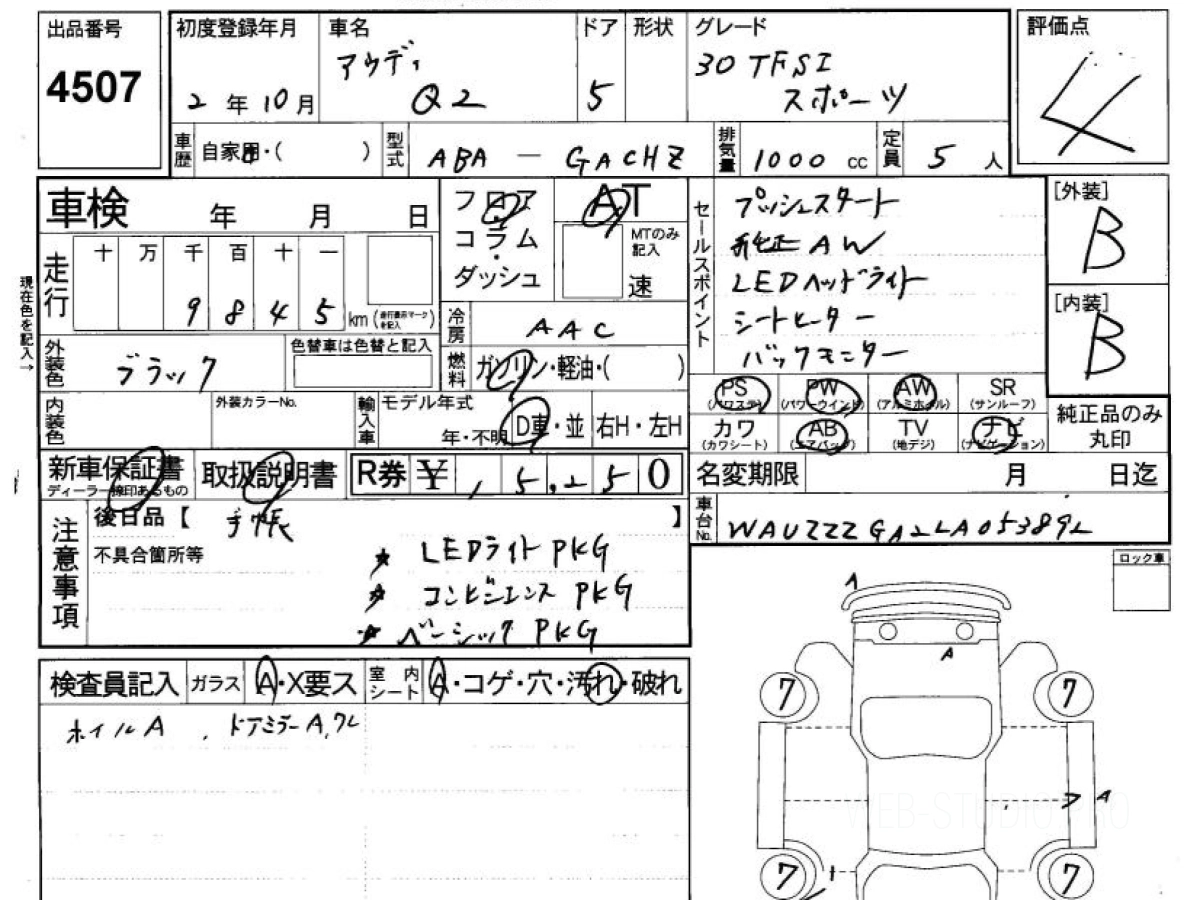 出品番号
4507
初度登録年月
2年10月
車名
アウディ
Q2
ドア
5
形状
グレード
30 TFSI
スポーツ
評価点
4
車歴
自家用・( )
型式
ABA - GACHZ
排気量
1000 cc
定員
5 人
車検 年 月 日
フロア
コラム
・
ダッシュ
AT
MTのみ
記入
速
セールスポイント
プッシュスタート
純正AW
LEDヘッドライト
シートヒーター
バックモニター
[外装]
B
[内装]
B
現在色を記入→
走行
十 万 千 百 十 一
9 8 4 5
km (走行表示マークを記入)
冷房
AAC
外装色
ブラック
色替車は色替と記入
燃料
ガソリン・軽油・( )
内装色
外装カラーNo.
輸入車
モデル年式
年・不明
D車・並
右H・左H
PS
(パワステ)
PW
(パワーウインド)
AW
(アルミホイル)
SR
(サンルーフ)
カワ
(カワシート)
AB
(エアバッグ)
TV
(地デジ)
ナビ
(ナビゲーション)
純正品のみ
丸印
新車保証書
ディーラー捺印あるもの
取扱説明書
R券 ¥ , 5,25 0
名変期限 月 日迄
車台No.
WAUZZZGA2LA05389L
注意事項
後日品【 手帳 】
不具合箇所等
★ LEDライトPKG
★ コンビニエンス PKG
★ ベーシック PKG
ロック車
検査員記入
ガラス
A・X要ス
室内シート
A・コゲ・穴・汚れ・破れ
ホイルA , ドアミラーA,ワレ
A
A
7
7
A
7
7
WEB-STUDIO.PRO